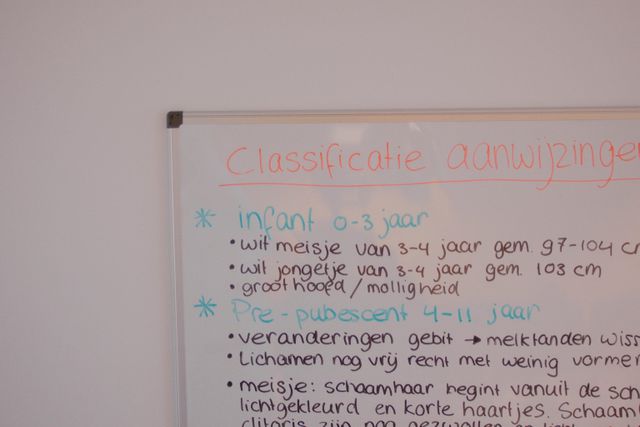 Classificatie aanwijzingen
* infant 0-3 jaar
• wit meisje van 3-4 jaar gem. 97-104 cm
• wit jongetje van 3-4 jaar gem. 103 cm
• groot hoofd / molligheid
* Pre-pubescent 4-11 jaar
• veranderingen gebit → melktanden
• Lichamen nog vrij recht met weinig
• meisje: schaamhaar begint vanuit de
lichtgekleurd en korte haartjes.
clitoris zijn nog